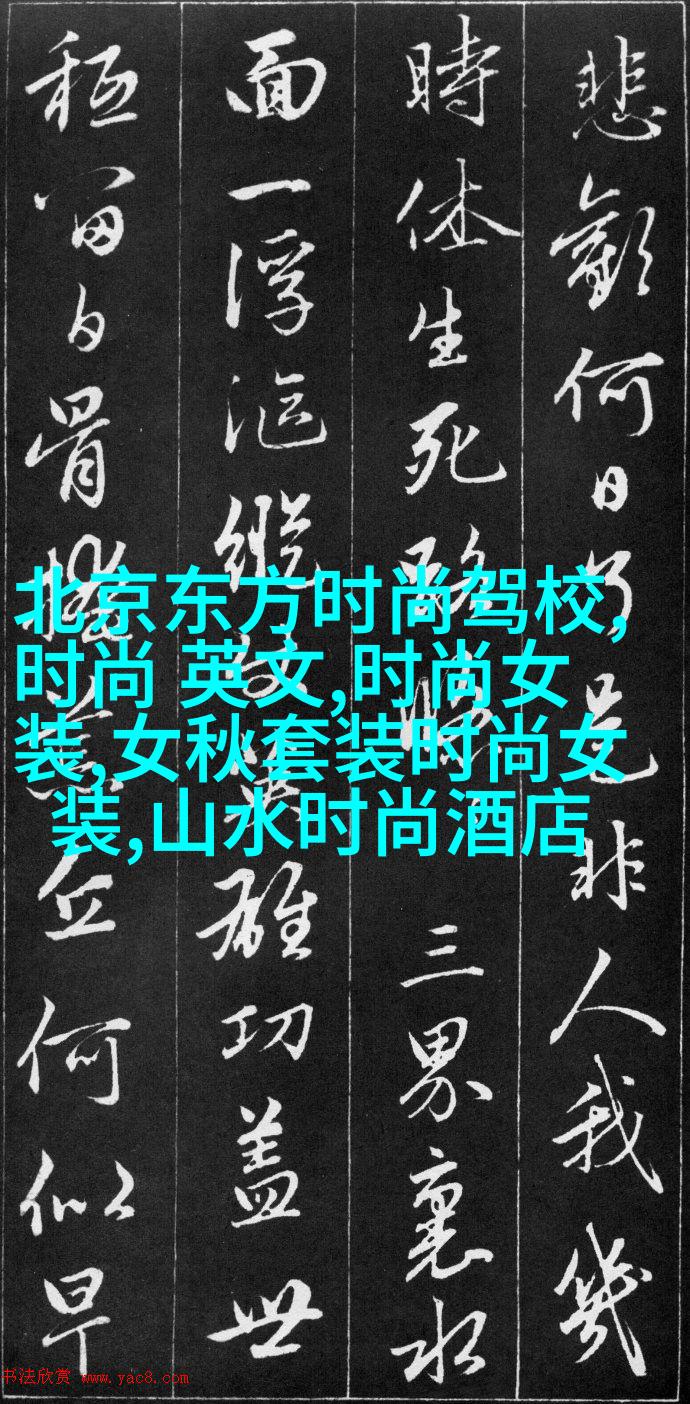 悲歡何日了是非人我幾
時休生死路漫三界裏水
面一浮漚縱英雄功蓋世
秖留白骨掩荒丘何似早
北京东方时尚驾校,
时尚 英文,时尚女
装,女秋套装时尚女
装,山水时尚酒店
书法欣赏 www.yac8.com